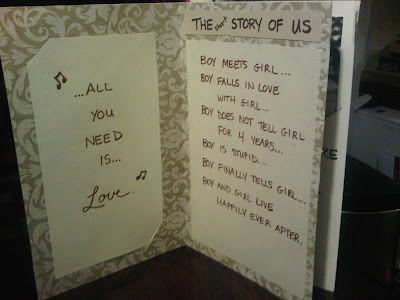 ...ALL
YOU
NEED
IS...
Love.
THE STORY OF US
BOY MEETS GIRL...
BOY FALLS IN LOVE
WITH GIRL...
BOY DOES NOT TELL GIRL
FOR 4 YEARS...
BOY IS STUPID...
BOY FINALLY TELLS GIRL...
BOY AND GIRL LIVE
HAPPILY EVER AFTER.